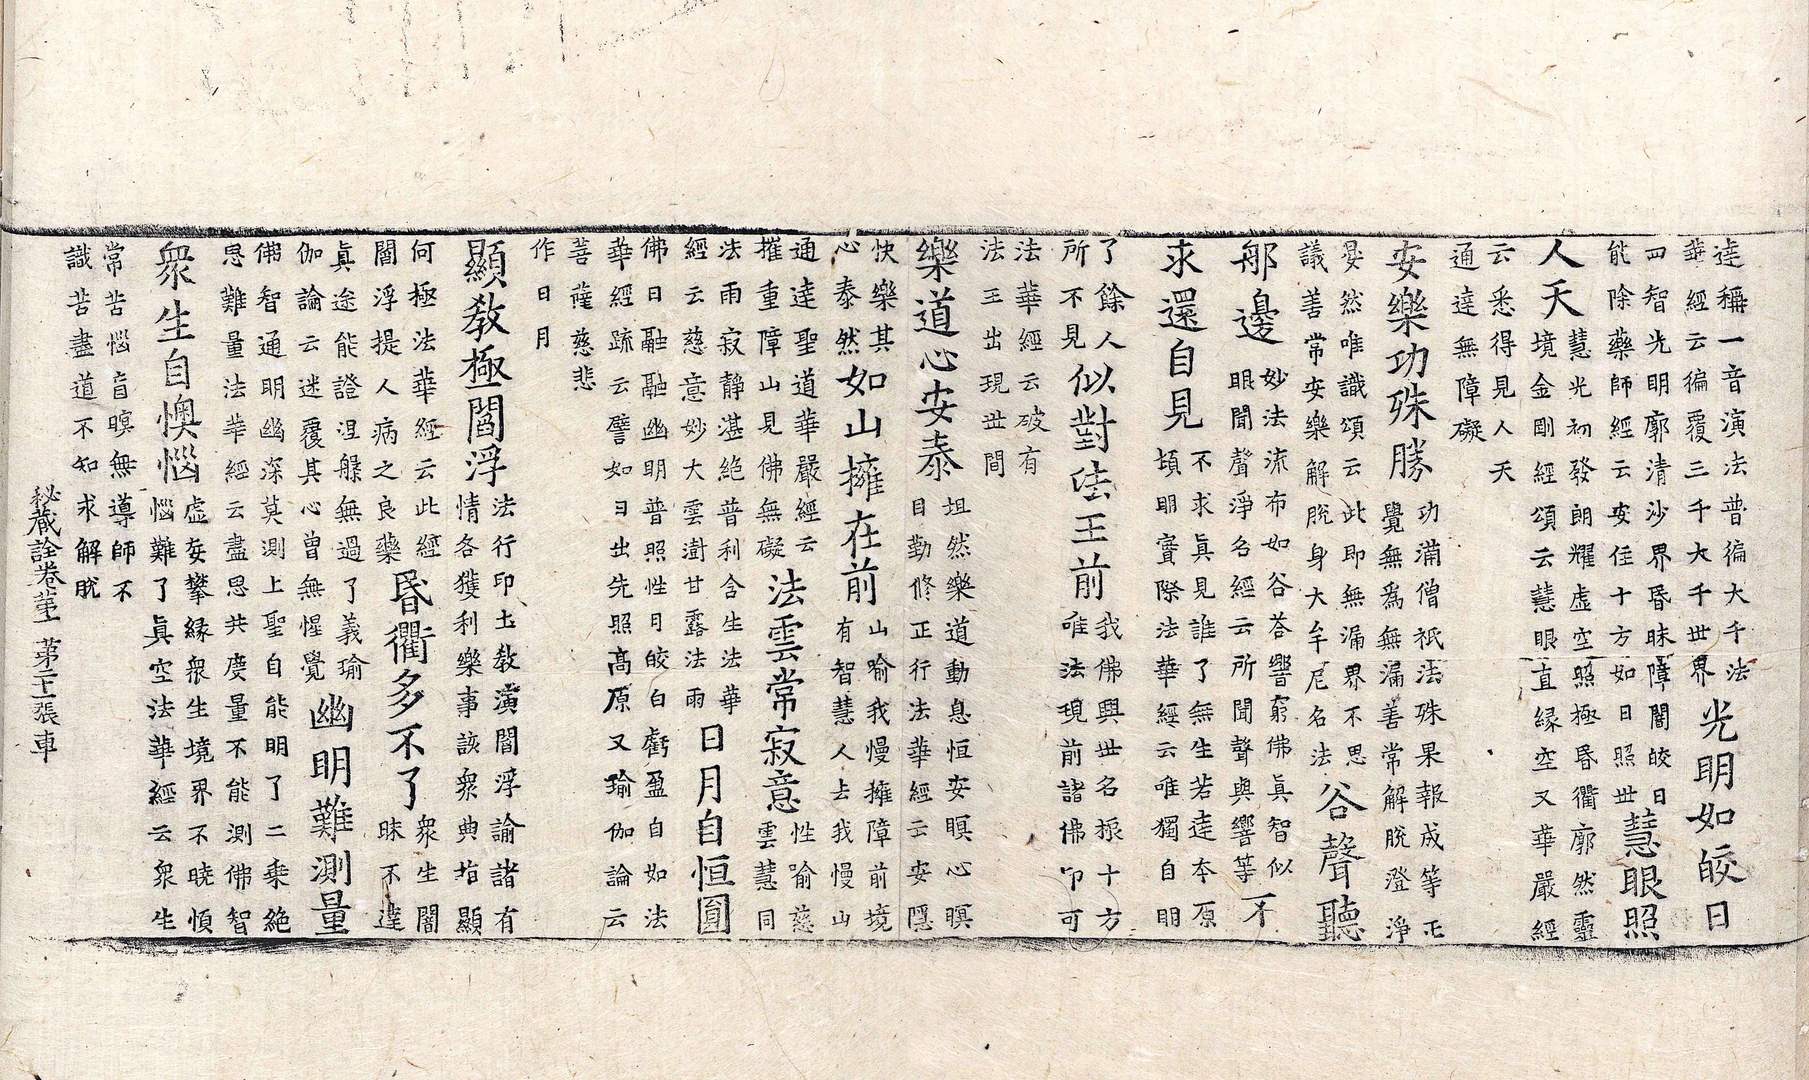 達稱一音演法普徧大千法
華經云徧覆三千大千世界
光明如皎日
四智光明廓清沙界昏昧障闇皎日
能除藥師經云安住十方如日照世
慧眼照
人天
慧光初發朗耀虛空照極昏衢廓然靈
境金剛經頌云慧眼直緣空又華嚴經
云悉得見人天
通達無障礙
安樂功殊勝
功滿僧祇法殊果報成等正
覺無為無漏善常解脫澄淨
晏然唯識頌云此即無漏界不思
議善常安樂解脫身大牟尼名法
谷聲聽
那邊
妙法流布如谷荅響窮佛真智似
眼聞聲淨名經云所聞聲與響等
不
求還自見
不求真見誰了無生若達本原
頓明實際法華經云唯獨自明
了餘人
所不見
似對法王前
我佛興世名振十方
唯法現前諸佛印可
法華經云破有
法王出現世間
樂道心安泰
坦然樂道動息恒安瞑心暝
目勤修正行法華經云安隱
快樂其
心泰然
如山擁在前
山喻我慢擁障前境
有智慧人去我慢山
通達聖道華嚴經云
摧重障山見佛無礙
法雲常寂意
性喻慈
雲慧同
法雨寂靜湛絕普利含生法華
經云慈意妙大雲澍甘露法雨
日月自恒圓
佛日融融幽明普照性月皎白虧盈自如法
華經疏云譬如日出先照高原又瑜伽論云
菩薩慈悲
作日月
顯教極閻浮
法行印土教演閻浮諭諸有
情各獲利樂事該衆典指顯
何極法華經云此經
閻浮提人病之良藥
昏衢多不了
衆生闇
昧不達
真途能證涅槃無過了義瑜
伽論云迷覆其心曾無惺覺
幽明難測量
佛智通明幽深莫測上聖自能明了二乘絕
思難量法華經云盡思共度量不能測佛智
衆生自懊惱
虛妄攀緣衆生境界不曉煩
惱難了真空法華經云衆生
常苦惱盲暝無導師不
識苦盡道不知求解脫
秘藏詮卷第 第 張 車